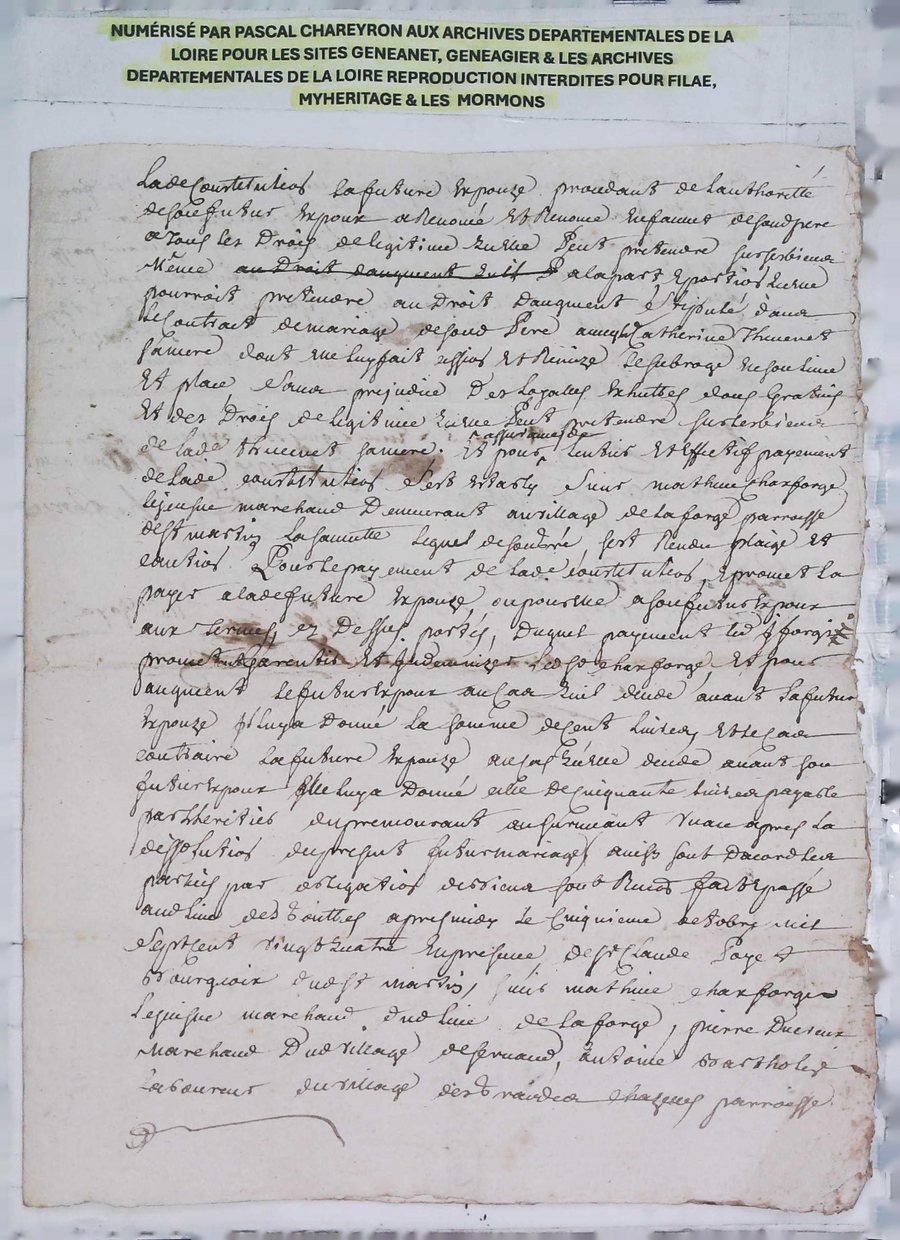 NUMÉRISÉ PAR PASCAL CHAREYRON AUX ARCHIVES DEPARTEMENTALES DE LA
LOIRE POUR LES SITES GENEANET, GENEAGIER & LES ARCHIVES
DEPARTEMENTALES DE LA LOIRE REPRODUCTION INTERDITES POUR FILAE,
MYHERITAGE & LES MORMONS
Lade Constitution la future Expouze procedant de lauthorité
de son futur Expoux a Renoncé Et Renonce Enfaveur de sond pere
a tous les Droits de legitime quelle Peut pretendre sur ses biens
Même au Droit daugment quil P a la part & portion quelle
pourroit pretendre au Droit Daugment stipulé dans
le Contract de mariage de sond Pere avecq Catherine Thevenet
sa mere dont elle luy fait cession Et Remize le subroge En son lieu
Et place sans prejudice Des Legattes
Et des Droits de legitime quelle Peut pretendre sur les biens
de lade thevenet sa mere. Et pour assurance de lentier Et Effectif payement
de lade constitution s'est Estably Sieur mathieu charforge
lejeusne marchand Demeurant au village de la forge parroisse
de st martin la sauveté lequel de son gré sest Rendu plaige Et
caution Pour le payement de lade constitution, & promet la
payer a lade future Expouze, ou pour elle a son futur Expoux
aux termes cy Dessus portés, Duquel payement led
promet Garentir Et Indemnizer led sr charforge, Et pour
augment le futur Expoux au cas quil decede avant la future
Expouze Il luy a Donné la somme de Cent livres, Et le Cas
contraire la future Expouze au cas quelle decede avant son
futur Expoux Elle luy a Donné celle de Cinquante livres payable
par lheritier du premourant au survivant un an apres la
dissolution du present futur mariage, ainsy sont Dacord les
parties par obligation de biens soub Renon fait & passé
aud lieu des apres midy le Cinquieme octobre mil
Sept Cent vingt quatre En presence de sr Claude Paye
Bourgeois dud st martin, sieur mathieu charforge
Lejeusne marchand dud lieu de la forge, pierre
Marchand Dud village de fernand, Antoine Bartholin
laboureur du village des parroisse